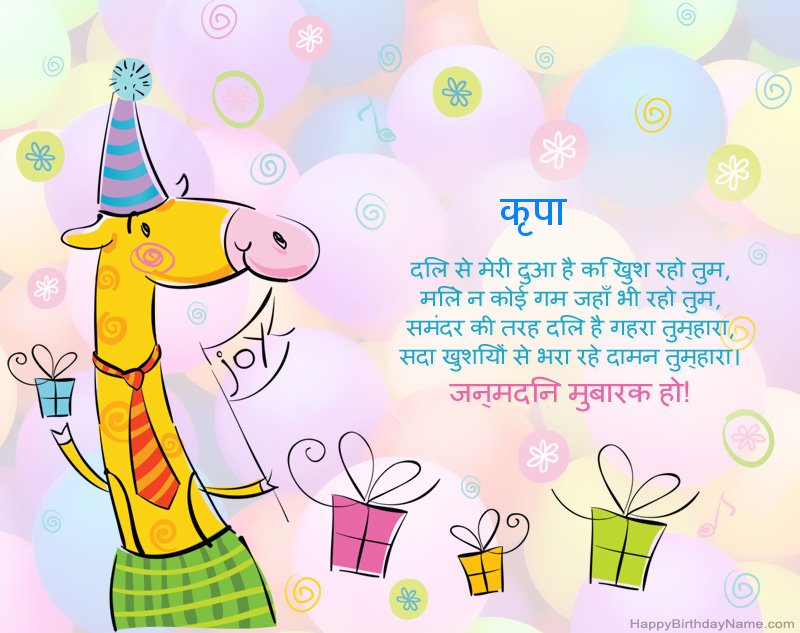 कृपा
दलि से मेरी दुआ है कि खुश रहो तुम,
मलिे न कोई गम जहाँ भी रहो तुम,
समंदर की तरह दलि है गहरा तुम्हारा,
सदा खुशयिों से भरा रहे दामन तुम्हारा।
जन्मदनि मुबारक हो!
joy
HappyBirthdayName.com